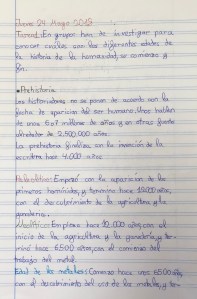 Jueves 24 Mayo 2018
Tarea: En grupo han de investigar para
conocer cuales son las diferentes edades de
la historia de la humanidad, su comienzo y
fin.
Prehistoria
Los historiadores no se ponen de acuerdo con la
fecha de aparición del ser humano. Unos hablan
de unos 5 o 7 millones de años y en otras fuente
alrededor de 2.500.000 años.
La prehistoria finaliza con la invención de la
escritura hace 4.000 años
Paleolítico: Empezó con la aparición de los
primeros homínidos, y termina hace 12000 años,
con el descubrimiento de la agricultura y la
ganadería.
Neolítico: Empieza hace 12.000 años, con el
inicio de la agricultura y la ganadería, y ter-
minó hace 6500 años, con el comienzo del
trabajo del metal.
Edad de los metales: Comenzo hace unos 6500 años
con el descubrimiento del uso de los metales, y ter-